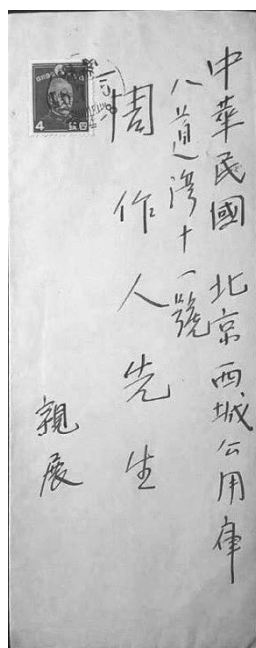 中華民國 北京西城公用庫
八道灣十一號
周作人先生
親展
4